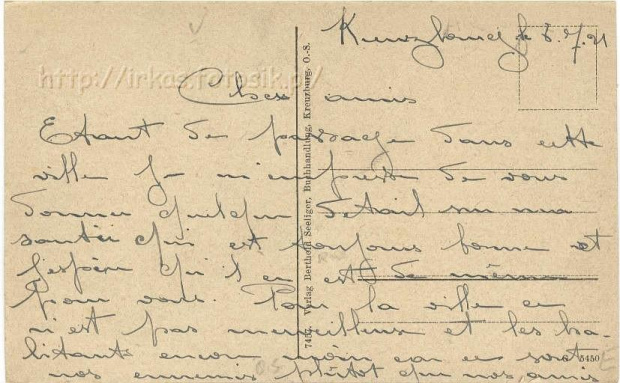 Kreuzbourg le 8.7.21
Chers amis
Etant de passage dans cette
ville je m'empresse de vous
donner quelque détail sur ma
santée qui est toujours bonne et
j'espère qu'il en est de même
pour vous. Pour la ville ce
n'est pas merveilleux et les ha-
bitants encore moin car ce sont
nos ennemis plutôt que nos amis
7437. Verlag Berthold Seeliger, Buchhandlung, Kreuzburg, O.-S.
5450
http://irkas.fotosik.pl/